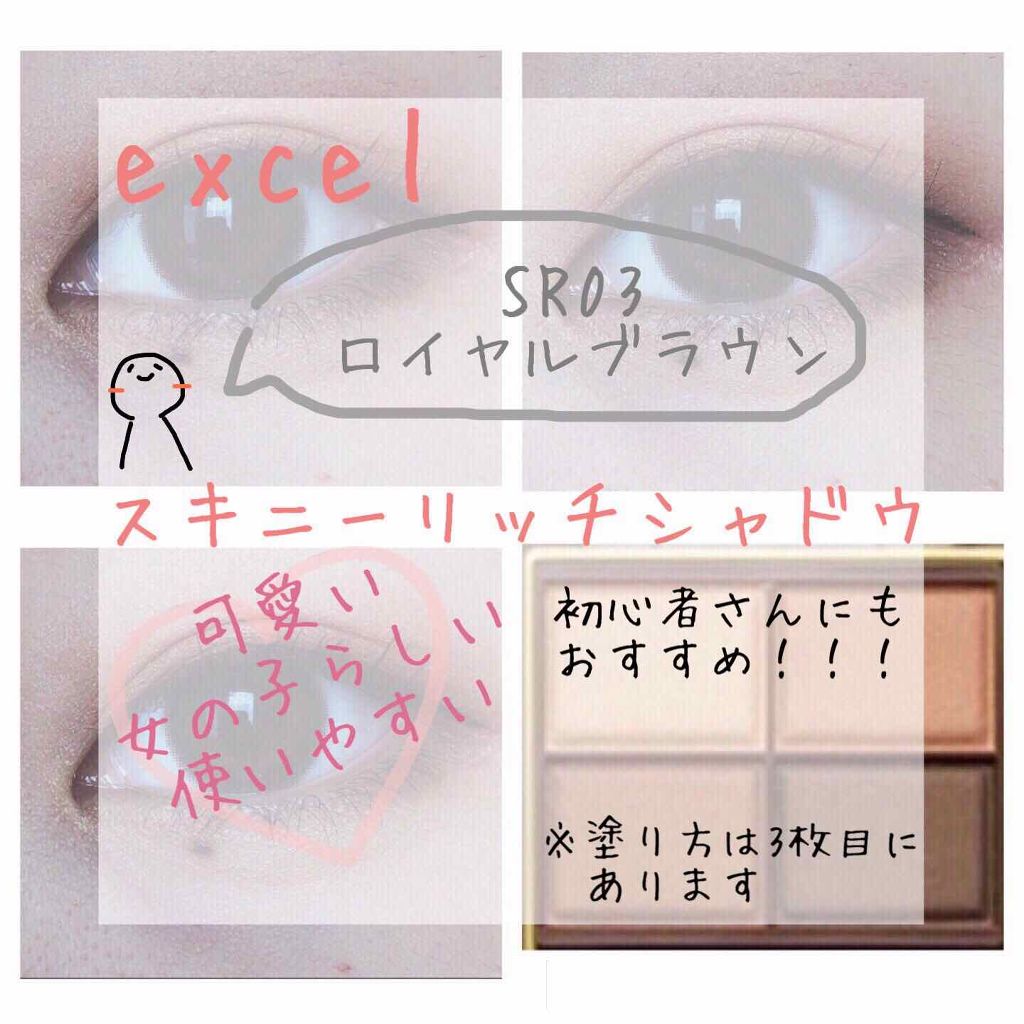 excel
SR03
ロイヤルブラウン
スキニーリッチシャドウ
可愛い
女の子らしい
使いやすい
初心者さんにも
おすすめ！！！
※塗り方は3枚目に
あります